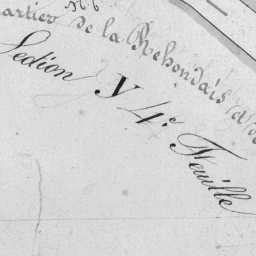 566
artier de la Rebondais
Section Y 4.e Feuille